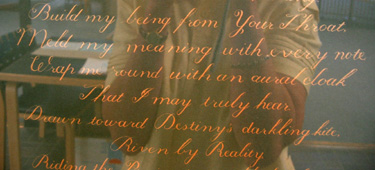 Build my being from Your Throat.
Mold my meaning with every note
Wrap me 'round with an aural cloak
That I may truly hear
Drawn toward Destiny's darkling kite.
Riven by Reality
Riding the